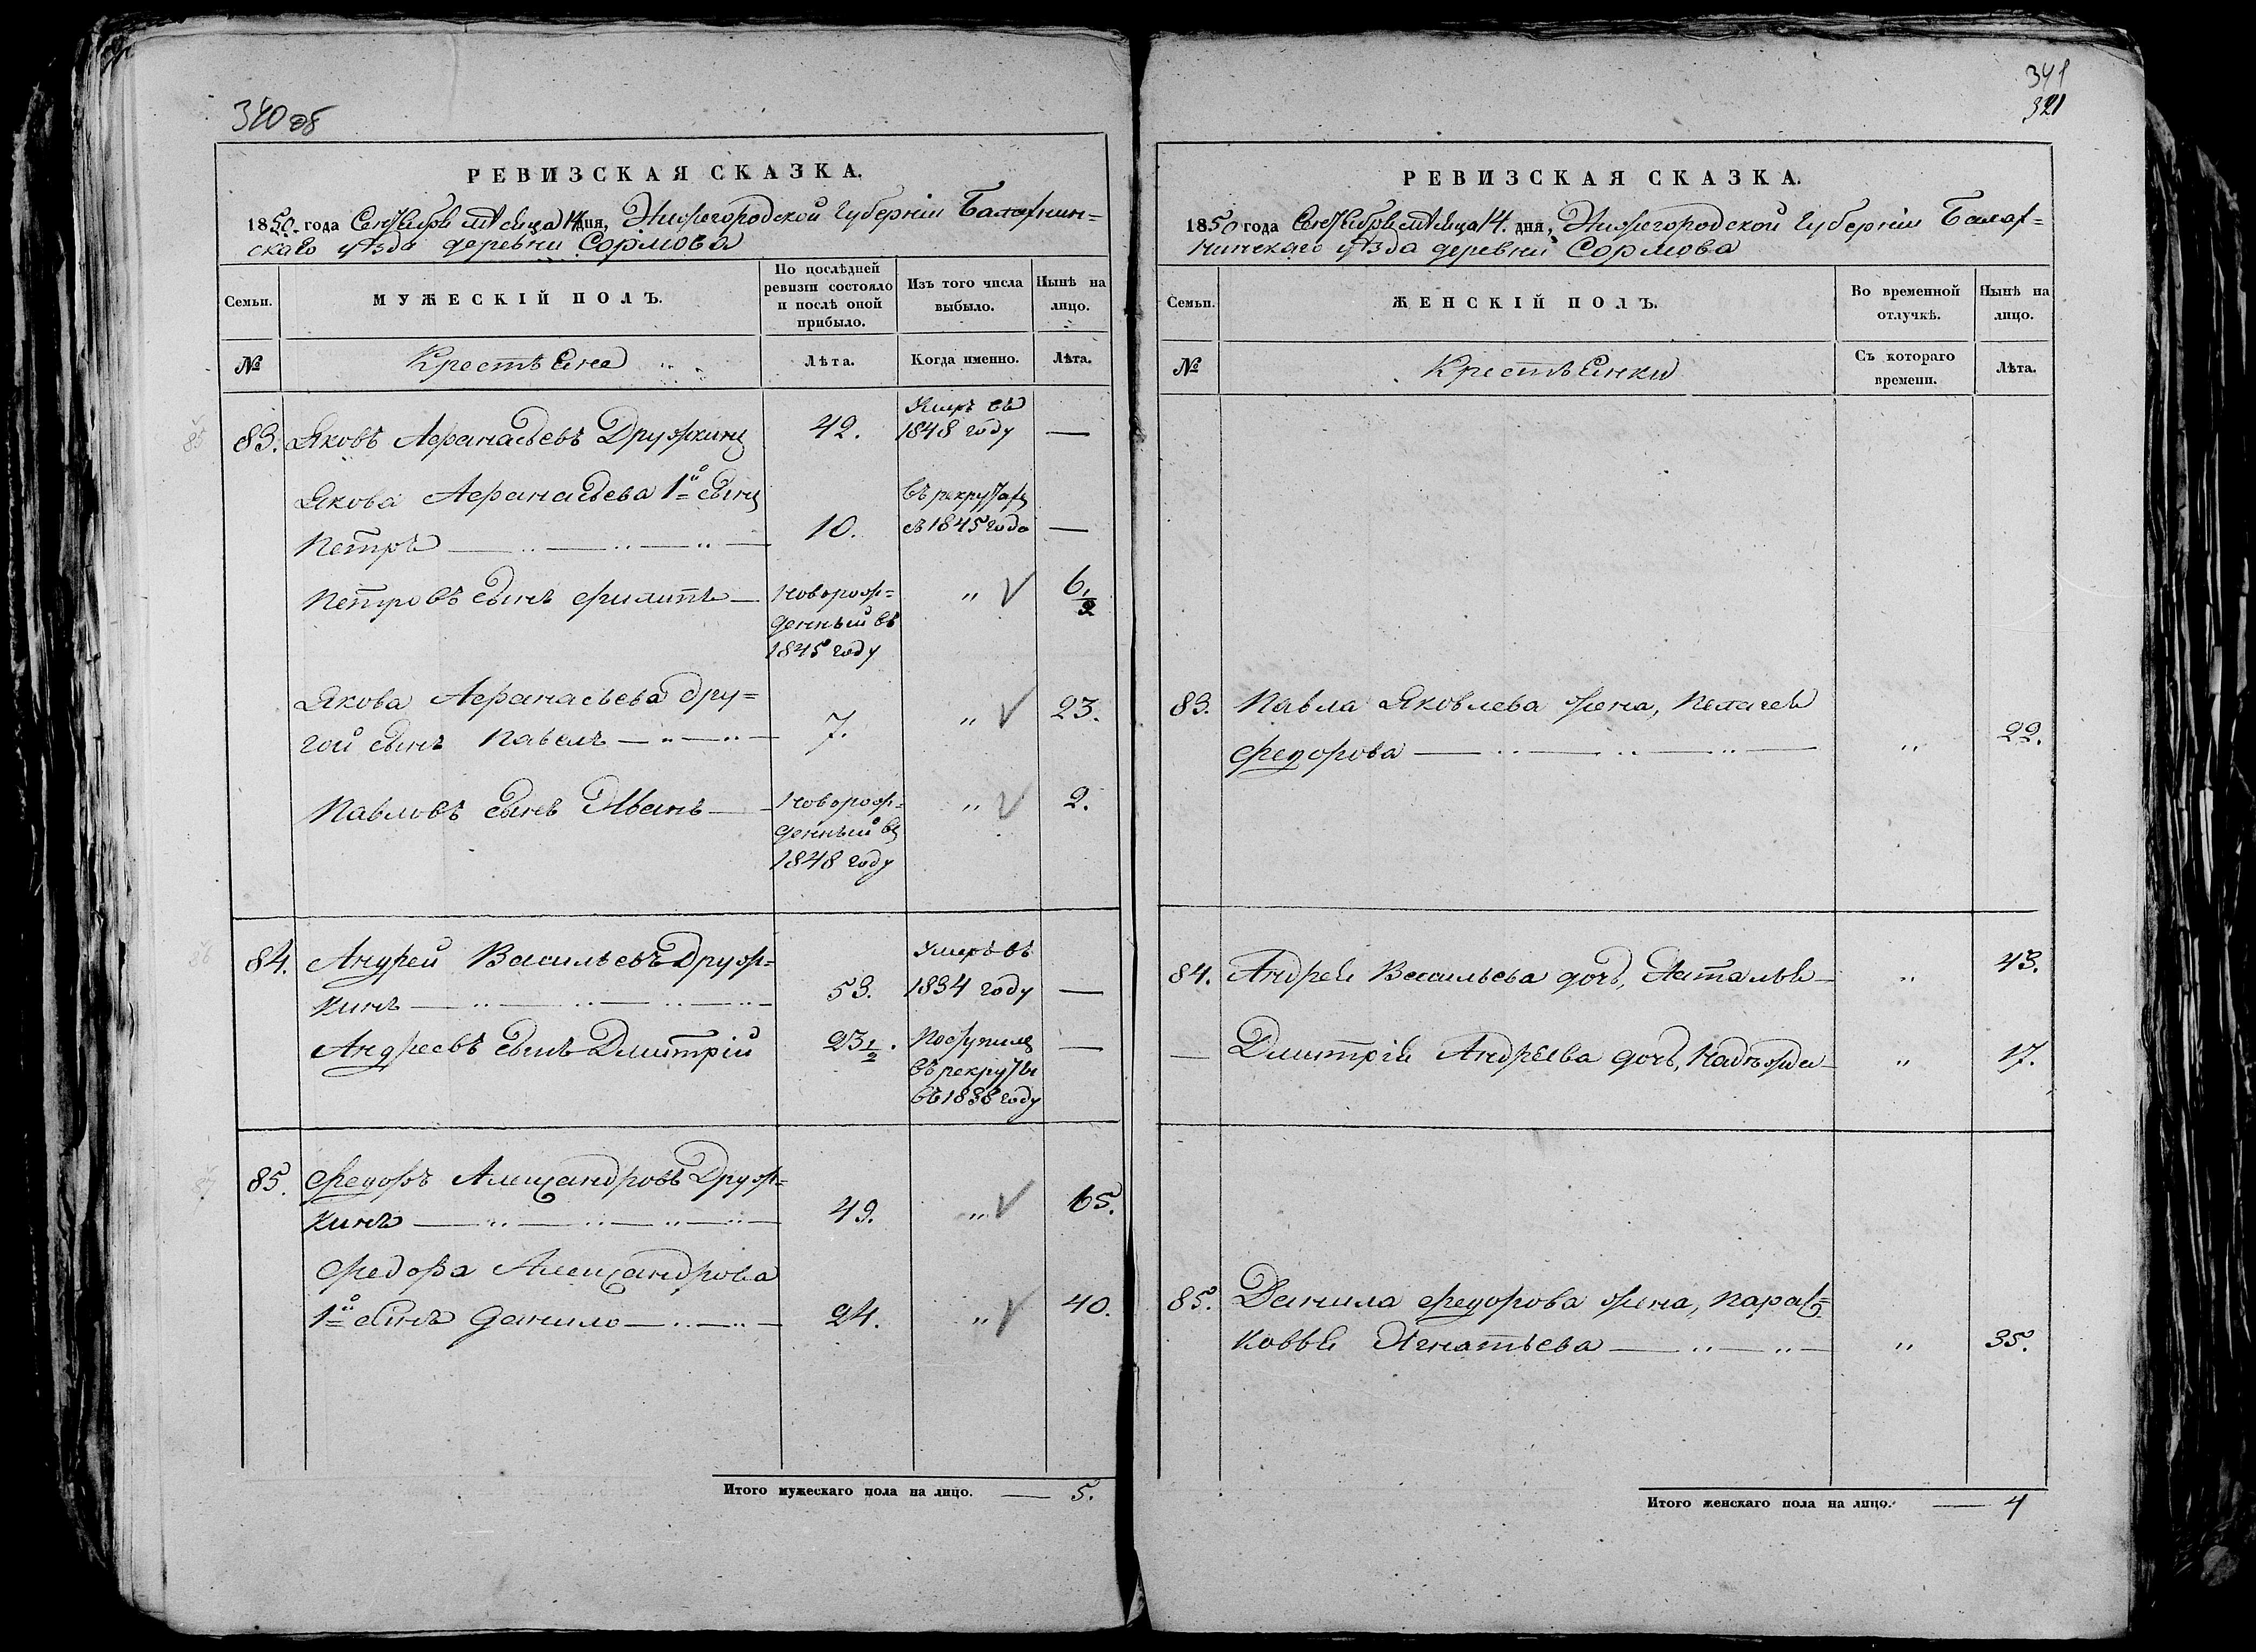 340 об
РЕВИЗСКАЯ СКАЗКА.
1850 года Сентября мѣсяца 14 дня, Нижегородской Губерніи Балахнин=
скаго уѣзда деревни Сормова
Семьи.
МУЖЕСКІЙ ПОЛЪ.
По послѣдней
ревизіи состояло
и послѣ оной
прибыло.
Изъ того числа
выбыло.
Нынѣ на
лицо.
№
Крестьяне
Лѣта.
Когда именно.
Лѣта.
83. Яковъ Афанасьевъ Дружкинъ 42. Умръ въ
1848 году —
Якова Афанасьева 1й сынъ
Петръ 10. Въ рекрутахъ
съ 1845 года —
Петровъ сынъ Филипъ Новорож=
денный въ
1845 году " 6 1/2
Якова Афанасьева дру=
гой сынъ Павелъ 7. " 23.
Павловъ сынъ Иванъ Новорож=
денный въ
1848 году " 2.
84. Андрей Васильевъ Друж=
кинъ 53. Умеръ въ
1834 году —
Андреевъ сынъ Дмитрій 23 1/2. Поступилъ
въ рекруты
въ 1838 году —
85. Федоръ Александровъ Друж=
кинъ 49. " 65.
Федора Александрова
1й сынъ Данило 24. " 40.
Итого мужескаго пола на лицо. — 5.
341
321
РЕВИЗСКАЯ СКАЗКА.
1850 года Сентября мѣсяца 14. дня, Нижегородской Губерніи Балах=
нинскаго уѣзда деревни Сормова
Семьи.
ЖЕНСКІЙ ПОЛЪ.
Во временной
отлучкѣ.
Нынѣ на
лицо.
№
Крестьянки
Съ котораго
времени.
Лѣта.
83. Павла Яковлева жена, Пелагея
Федорова " 22.
84. Андрея Васильева дочь, Наталья " 43.
— Дмитрія Андреева дочь, Надежда " 17.
85. Данила Федорова жена, Парас=
ковья Игнатьева " 35.
Итого женскаго пола на лицо. — 4